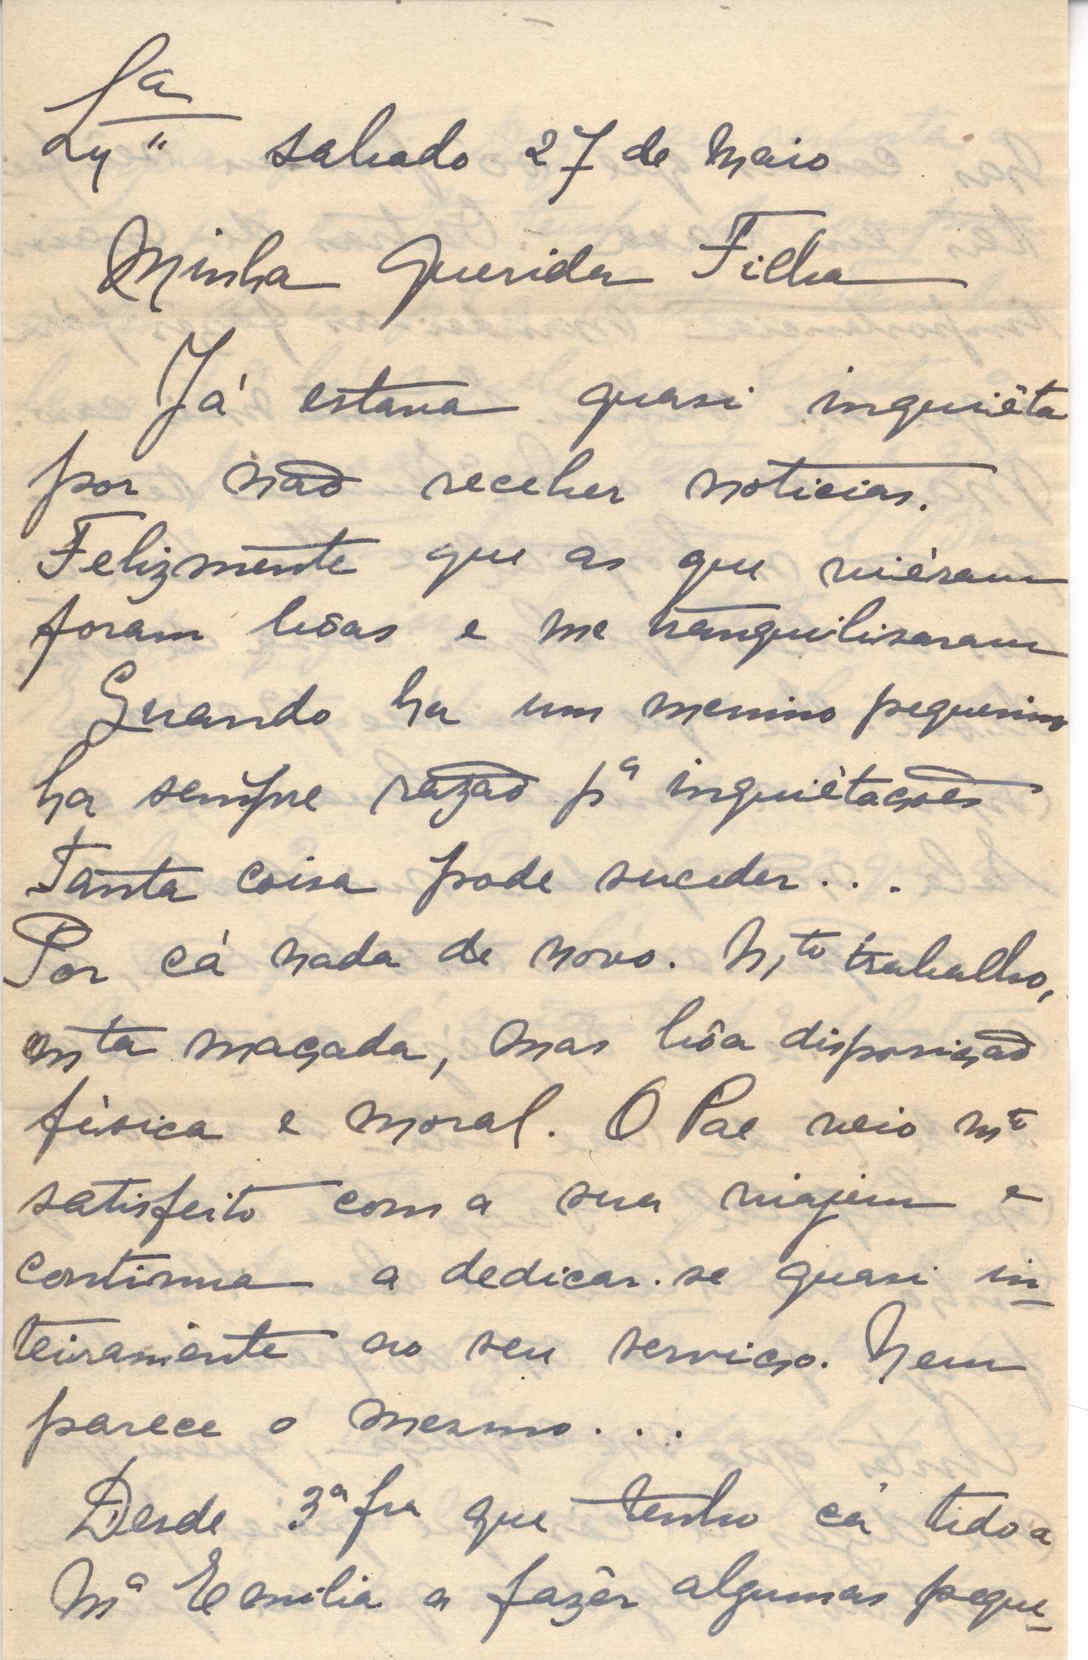 Lxª
24" sabado 27 de Maio
Minha Querida Filha
Já estava quasi inquiéta
por não receber noticias.
Felizmente que as que viéram
foram bôas e me tranquilisaram
Quando ha um menino pequenino
ha sempre razão pª inquiétações
Tanta coisa pode suceder...
Por cá nada de novo. M.to trabalho,
mta maçada, mas bôa disposição
fisica e moral. O Pae veio mto
satisfeito com a sua viajem e
continua a dedicar-se quasi in-
teiramente ao seu serviço. Nem
parece o mesmo...
Desde 3ª fra que tenho cá tido a
Mª Emilia a fazêr algumas peque-